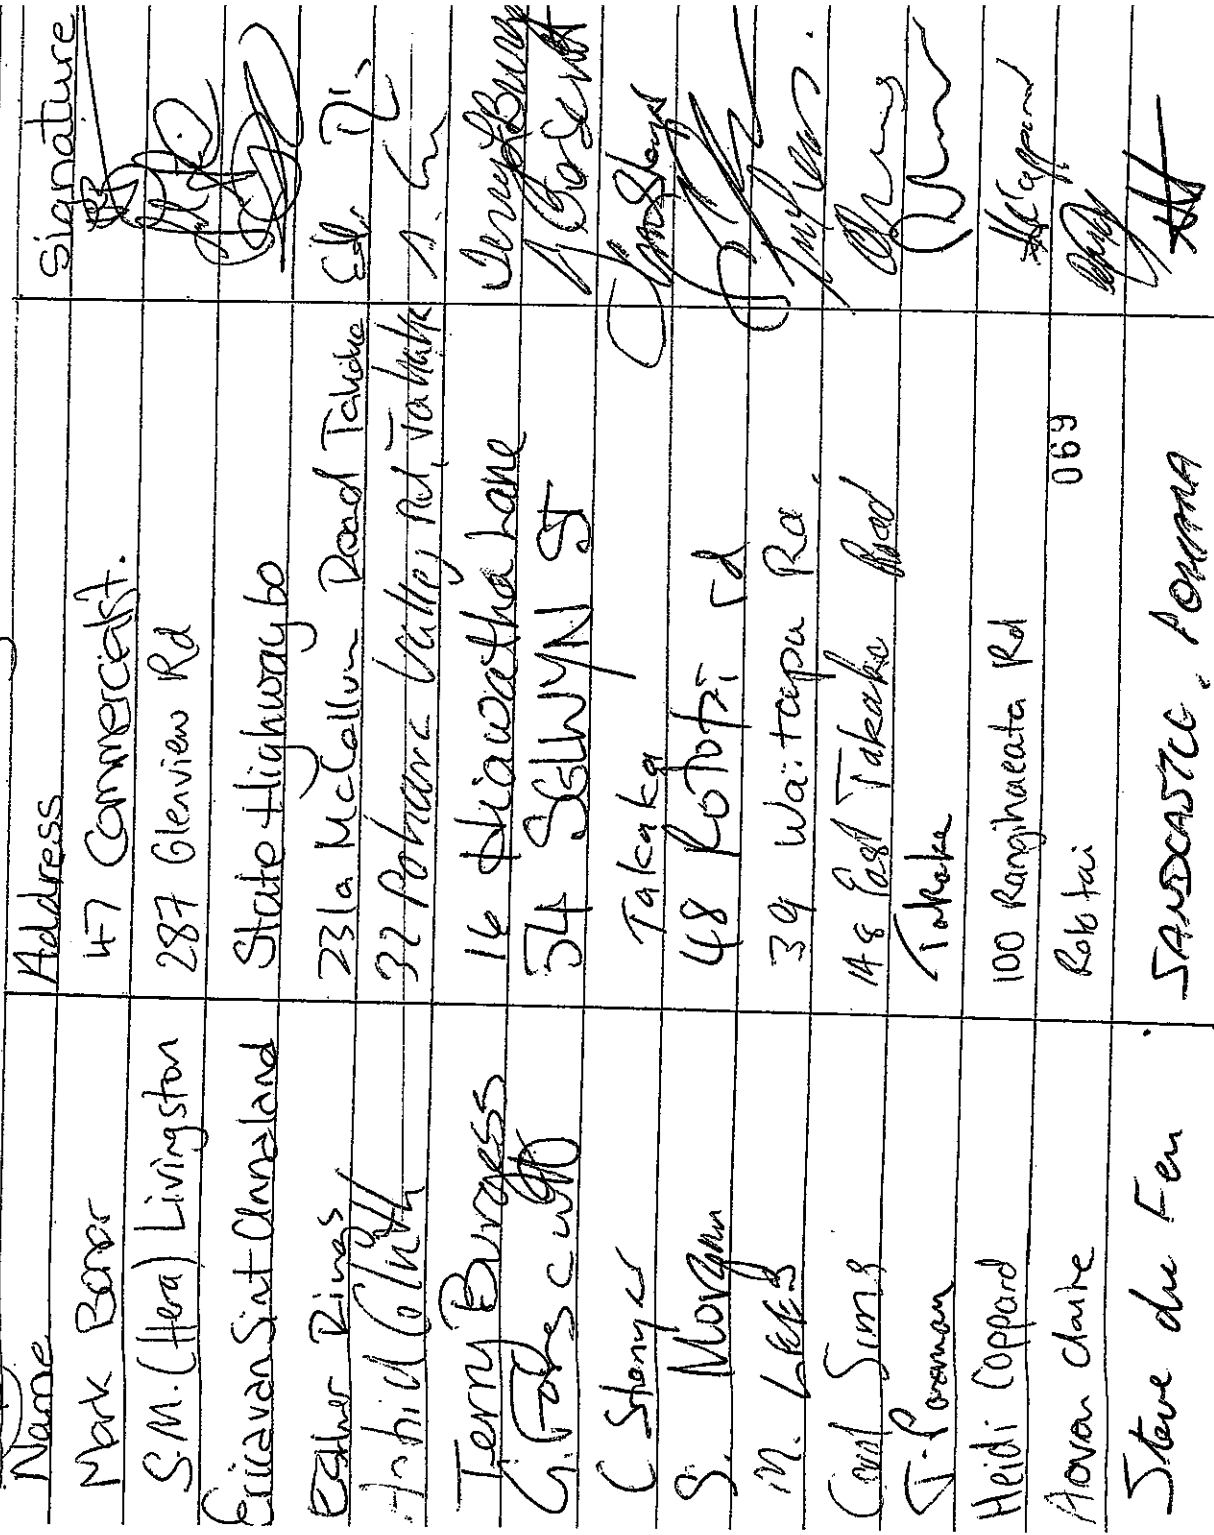 Name Address Signature
Mark Bonar 47 Commercial st.
S.M. (Hera) Livingston 287 Glenview Rd
Erica van Sint Annaland State Highway 60
Esther Rings 231a McCollum Road Takaka
Colin 32 Pohara Valley Rd, Takaka
Terry Burgess 16 Hiawatha Lane
G. 54 SELWYN ST
C Stanger Takaka
S. Morgan 48 Rototai rd
M. Lees 39 Waitapu Rd.
Carol Sims 148 East Takaka Road
Takaka
Heidi Coppard 100 Rangihaeata Rd
Clarke Rototai 069
Steve du Feu SANDCASTLE. POHARA